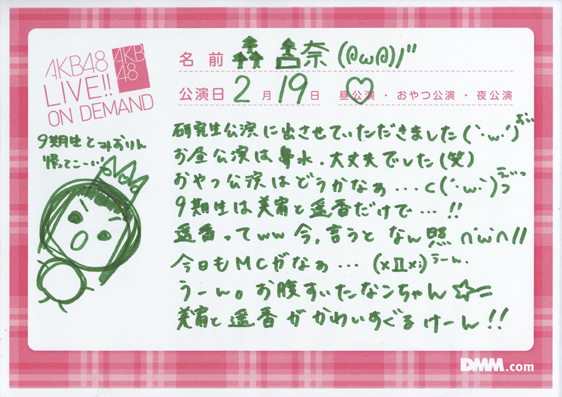 AKB48
LIVE!!
ON DEMAND
AKB
48
名前 森杏奈(^ω^)//"
公演日 2月19日 昼公演・おやつ公演・夜公演
9期生とみおりん
帰ってこーい
研究生公演に出させていただきました(´·ω·`)
お昼公演は鼻水、大丈夫でした(笑)
おやつ公演はどうかなぁ…c(´·ω·`)
9期生は美宥と遥香だけで…!!
遥香ってww 今、言うと なん照 ∩´ω`∩//
今日もMCがなぁ…(×Д×;)うーん。
うーん。お腹すいたなンちゃん☆=
美宥と遥香がかわいすぐるけーん!!
DMM.com